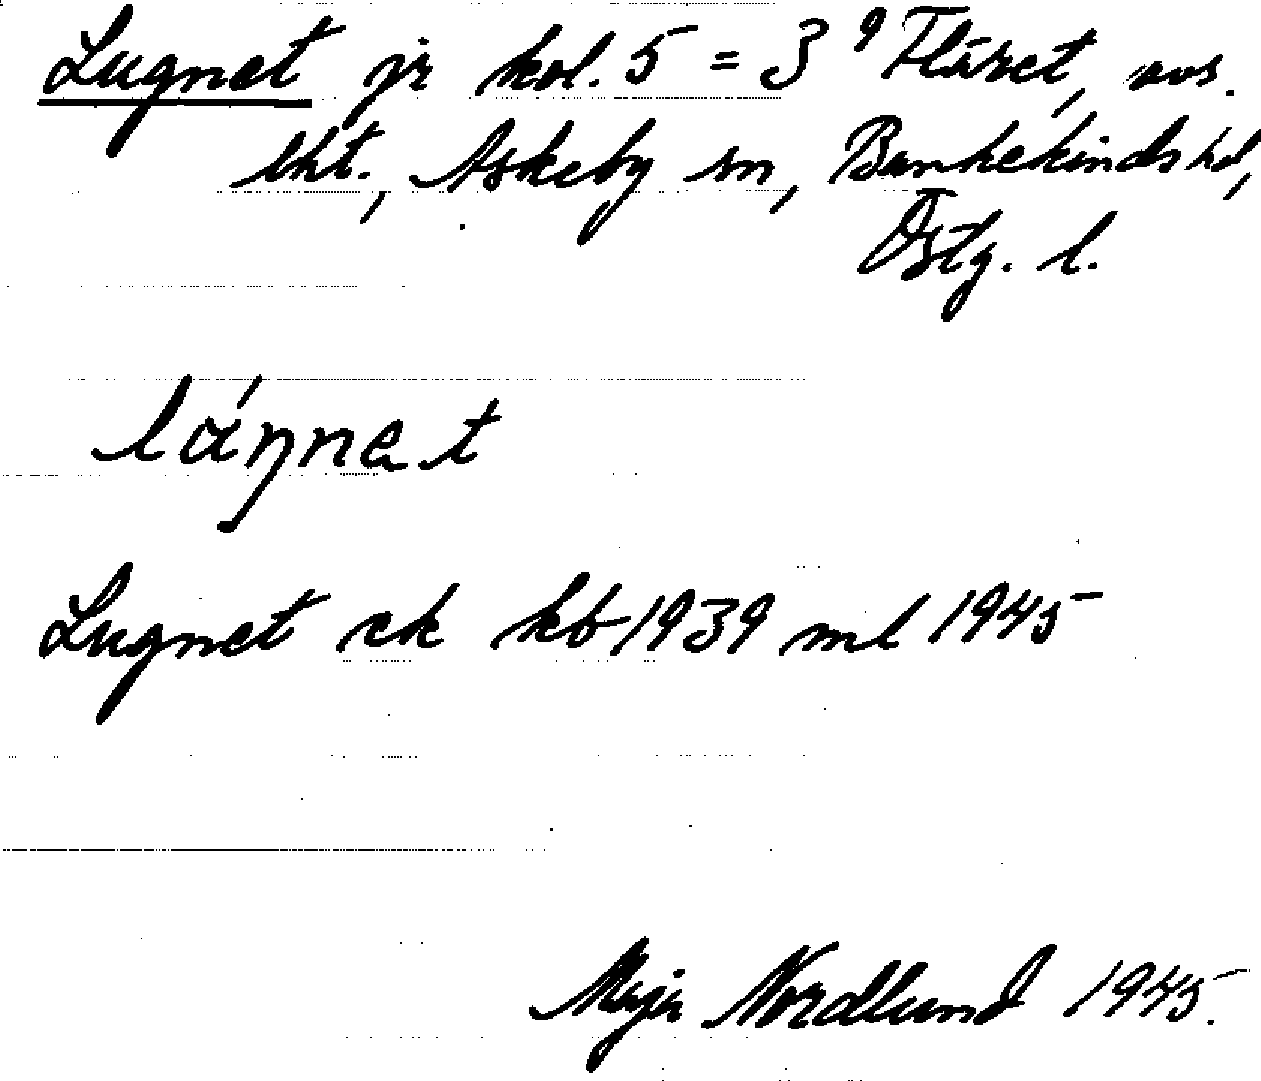 Lugnet jr kol. 5 = 3⁹ Fläret, avs.
lht., Askeby sn, Bankekinds hd,
Östg. l.
láŋnet
Lugnet ek kb 1939 ml 1945
Maja Nordlund 1945.